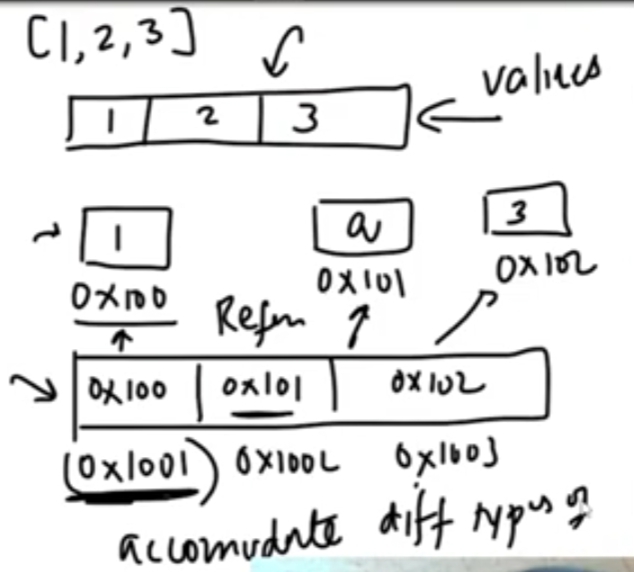 [1,2,3]
values
1 2 3
1 a 3
0x100 0x101 0x102
Refern
0x100 0x101 0x102
(0x1001) 0x1002 0x1003
accomudate diff types of